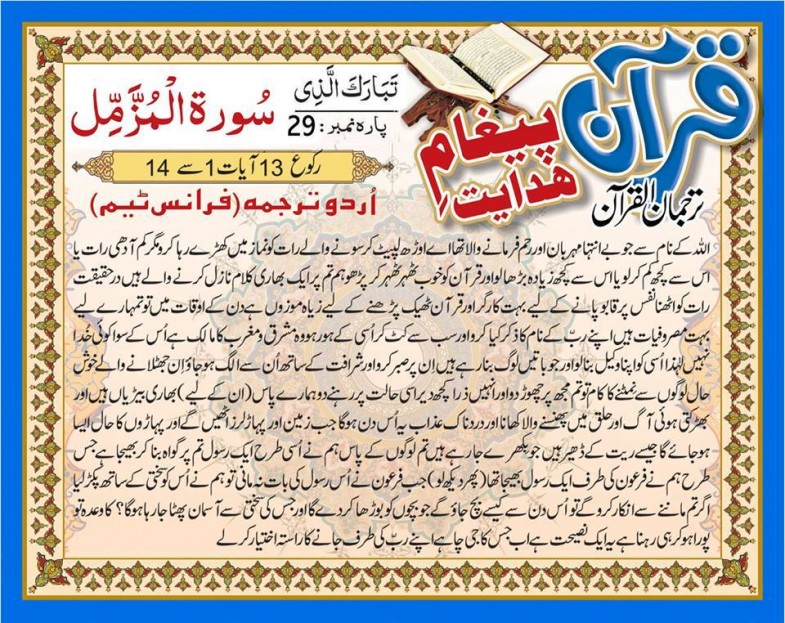 قرآن
پیغامِ
ھدایت
ترجمان القرآن
تَبَارَكَ الَّذِی
پارہ نمبر: 29
سُورۃ الْمُزَّمِّل
رکوع 13 آیات 1 سے 14
اُردو ترجمہ (فرانس ٹیم)
اللہ کے نام سے جو بے انتہا مہربان اور رحم فرمانے والا تھا اے اوڑھ لپیٹ کر سونے والے رات کو نماز میں کھڑے رہا کرو مگر کم آدھی رات یا
اس سے کچھ کم کر لو یا اس سے کچھ زیادہ بڑھا لو اور قرآن کو خوب ٹھہر ٹھہر کر پڑھو ہم تم پر ایک بھاری کلام نازل کرنے والے ہیں درحقیقت
رات کو اٹھنا نفس پر قابو پانے کے لیے بہت کارگر اور قرآن ٹھیک پڑھنے کے لیے زیاہ موزوں ہے دن کے اوقات میں تو تمہارے لیے
بہت مصروفیات ہیں اپنے ربّ کے نام کا ذکر کیا کرو اور سب سے کٹ کر اُسی کے ہو رہو وہ مشرق و مغرب کا مالک ہے اُس کے سوا کوئی خُدا
نہیں لہٰذا اُسی کو اپنا وکیل بنا لو اور جو باتیں لوگ بنا رہے ہیں اِن پر صبر کرو اور شرافت کے ساتھ اُن سے الگ ہو جاؤ اِن جھٹلانے والے خوش
حال لوگوں سے نمٹنے کا کام تو تم مجھ پر چھوڑ دو اور انہیں ذرا کچھ دیر اسی حالت پر رہنے دو ہمارے پاس (ان کے لیے) بھاری بیڑیاں ہیں اور
بھڑکتی ہوئی آگ اور حلق میں پھنسنے والا کھانا اور دردناک عذاب یہ اُس دن ہوگا جب زمین اور پہاڑ لرز اٹھیں گے اور پہاڑوں کا حال ایسا
ہو جائے گا جیسے ریت کے ڈھیر ہیں جو بکھرے جا رہے ہیں تم لوگوں کے پاس ہم نے اُسی طرح ایک رسول تم پر گواہ بنا کر بھیجا ہے جس
طرح ہم نے فرعون کی طرف ایک رسول بھیجا تھا (پھر دیکھ لو) جب فرعون نے اُس رسول کی بات نہ مانی تو ہم نے اُس کو سختی کے ساتھ پکڑ لیا
اگر تم ماننے سے انکار کرو گے تو اُس دن سے کیسے بچ جاؤ گے جو بچوں کو بوڑھا کر دے گا اور جس کی سختی سے آسمان پھٹا جا رہا ہوگا؟ کا وعدہ تو
پورا ہو کر ہی رہنا ہے یہ ایک نصیحت ہے اب جس کا جی چاہے اپنے ربّ کی طرف جانے کا راستہ اختیار کر لے